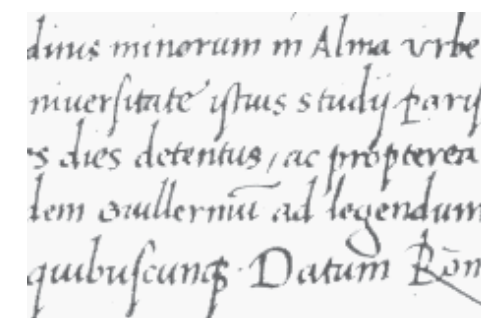 dinis minorum in Alma vrbe
niuersitate istius studij paris
s dies detentus, ac propterea
dem Guillermū ad legendum
quibuscunqꝫ. Datum Rōm